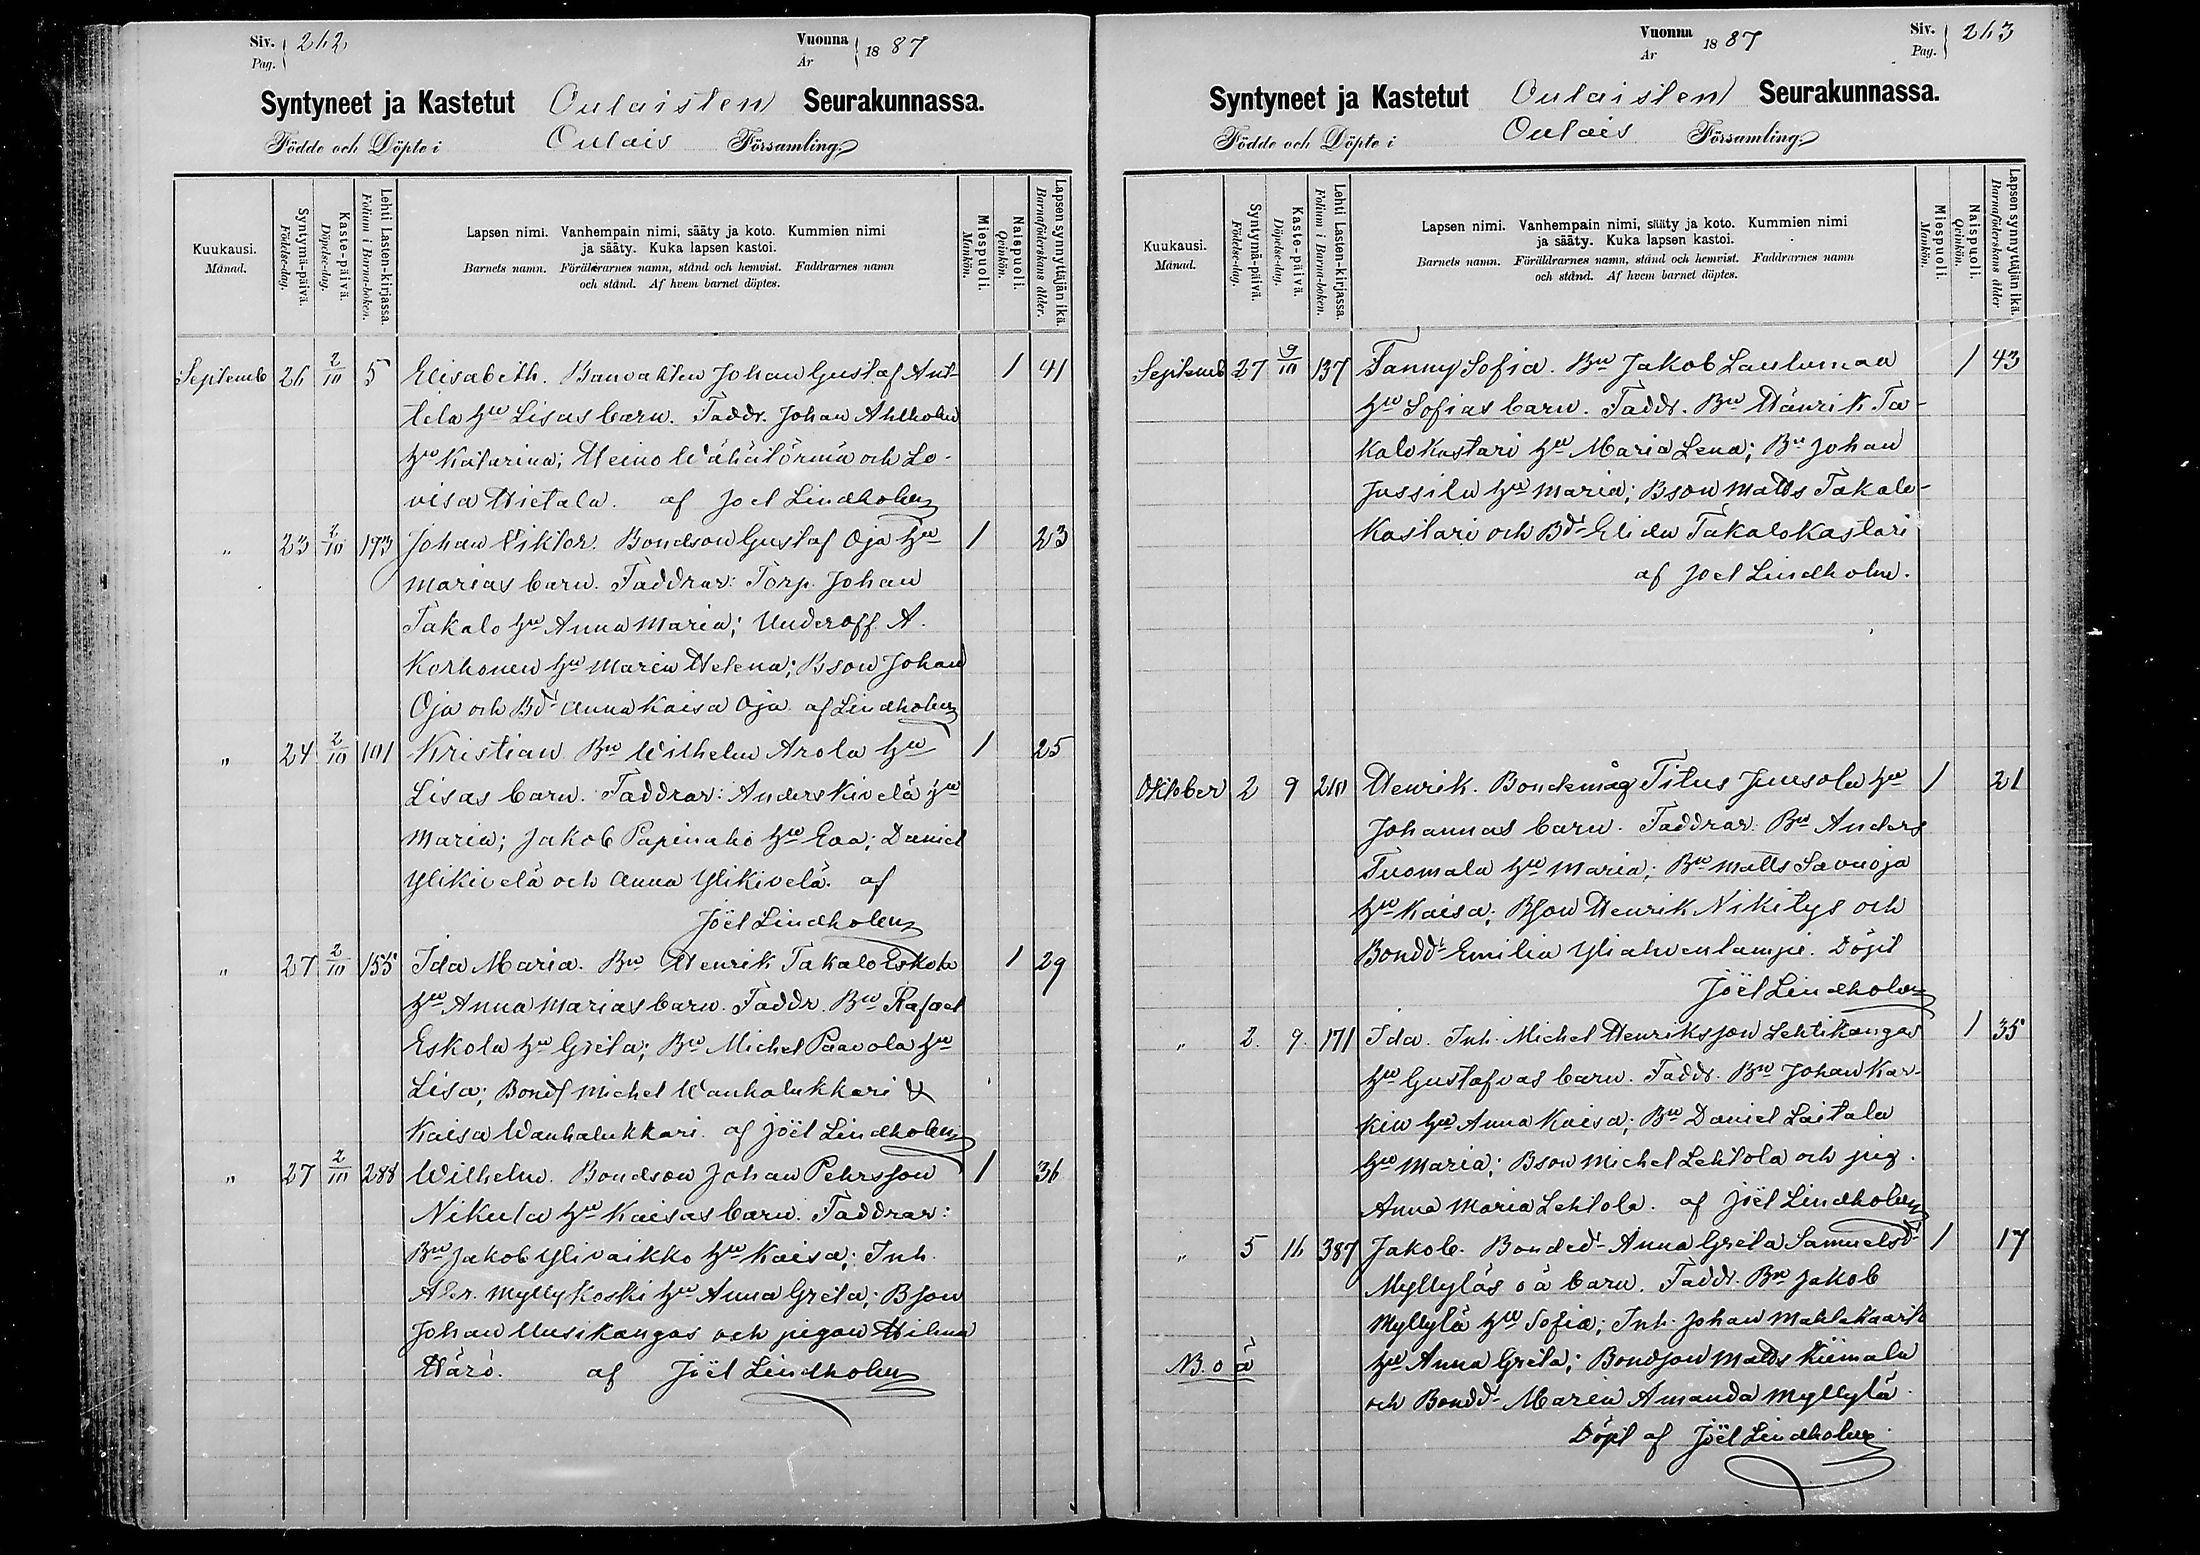 Siv. 262
Pag.
Vuonna 1887
År
Syntyneet ja Kastetut Oulaisten Seurakunnassa.
Födde och Döpte i Oulais Församling
Kuukausi.
Månad.
Syntymä-päivä.
Födelse-dag.
Kaste-päivä.
Döpelse-dag.
Lehti Lasten-kirjassa.
Folium i Barna-boken.
Lapsen nimi. Vanhempain nimi, sääty ja koto. Kummien nimi
ja sääty. Kuka lapsen kastoi.
Barnets namn. Föräldrarnes namn, stånd och hemvist. Faddrarnes namn
och stånd. Af hvem barnet döptes.
Miespuoli.
Mankön.
Naispuoli.
Qvinkön.
Lapsen synnyttäjän ikä.
Barnaföderskans ålder.
Septemb 26 2/10 5 Elisabeth. Banvakten Johan Gustaf Ant- 1 41
tila hu Lisas barn. Faddr. Johan Ahlholm
hu Katarina; Heino Wähätörmä och Lo-
visa Hietala. af Joel Lindholm
" 23 2/10 173 Johan Viktor. Bondson Gustaf Oja hu 1 23
Marias barn. Faddrar: Torp. Johan
Takalo hu Anna Maria; Underoff A.
Korhonen hu Maria Helena; Bson Johan
Oja och Bdr Anna Kaisa Oja af Lindholm
" 24 2/10 101 Kristian Bn Wilhelm Arola hu 1 25
Lisas barn. Faddrar: Anders Kivelä hu
Maria; Jakob Papinaho hu Eva; Daniel
Ylikivelä och Anna Ylikivelä. af
Joël Lindholm
" 27 2/10 155 Ida Maria. Bn Henrik Takalo Eskola 1 29
hu Anna Marias barn. Faddr. Bn Rafael
Eskola hu Greta; Bn Michel Paavola hu
Lisa; Bonds Michel Wanhalukkari &
Kaisa Wanhalukkari. af Joël Lindholm
" 27 2/10 288 Wilhelm. Bondson Johan Pehrsson 1 36
Nikula hu Kaisas barn. Faddrar:
Bn Jakob Ylivaikko hu Kaisa; Inh.
Abr. Myllykoski hu Anna Greta; Bson
Johan Uusikangas och pigan Hilma
Härö. af Joël Lindholm
Vuonna 1887
År
Siv. 263
Pag.
Syntyneet ja Kastetut Oulaisten Seurakunnassa.
Födde och Döpte i Oulais Församling
Kuukausi.
Månad.
Syntymä-päivä.
Födelse-dag.
Kaste-päivä.
Döpelse-dag.
Lehti Lasten-kirjassa.
Folium i Barna-boken.
Lapsen nimi. Vanhempain nimi, sääty ja koto. Kummien nimi
ja sääty. Kuka lapsen kastoi.
Barnets namn. Föräldrarnes namn, stånd och hemvist. Faddrarnes namn
och stånd. Af hvem barnet döptes.
Miespuoli.
Mankön.
Naispuoli.
Qvinkön.
Lapsen synnyttäjän ikä.
Barnaföderskans ålder
Septemb 27 9/10 137 Fanny Sofia. Bn Jakob Lauluman 1 43
hu Sofias barn. Faddr. Bn Hänrik Ta-
kalokastari hu Maria Lena; Bn Johan
Jussila hu Maria; Bson Matts Takalo-
kastari och Bdr Elida Takalokastari
af Joel Lindholm.
Oktober 2 9 210 Henrik. Bondemåg Titus Juusola hu 1 21
Johannas barn. Faddrar Bn Anders
Tuomala hu Maria; Bn Matts Savuoja
hu Kaisa; Bson Henrik Nikitys och
Bondd. Emilia Yliahvenlampi. Döpt
Joël Lindholm
" 2. 9. 171 Ida. Inh. Michel Henriksson Lehtikangas 1 35
hu Gustafvas barn. Faddr. Bn Johan Kar-
kin hu Anna Kaisa; Bn Daniel Laitala
hu Maria; Bson Michel Lehtola och pig.
Anna Maria Lehtola. af Joël Lindholm
" 5 16 387 Jakob. Bondedr Anna Greta Samuelsdr 1 17
Myllyläs oä barn. Faddr. Bn Jakob
Myllylä hu Sofia; Inh. Johan
NB. o ä hu Anna Greta; Bondson Matts Kiimala
och Bondd. Maria Amanda Myllylä
Döpt af Joël Lindholm